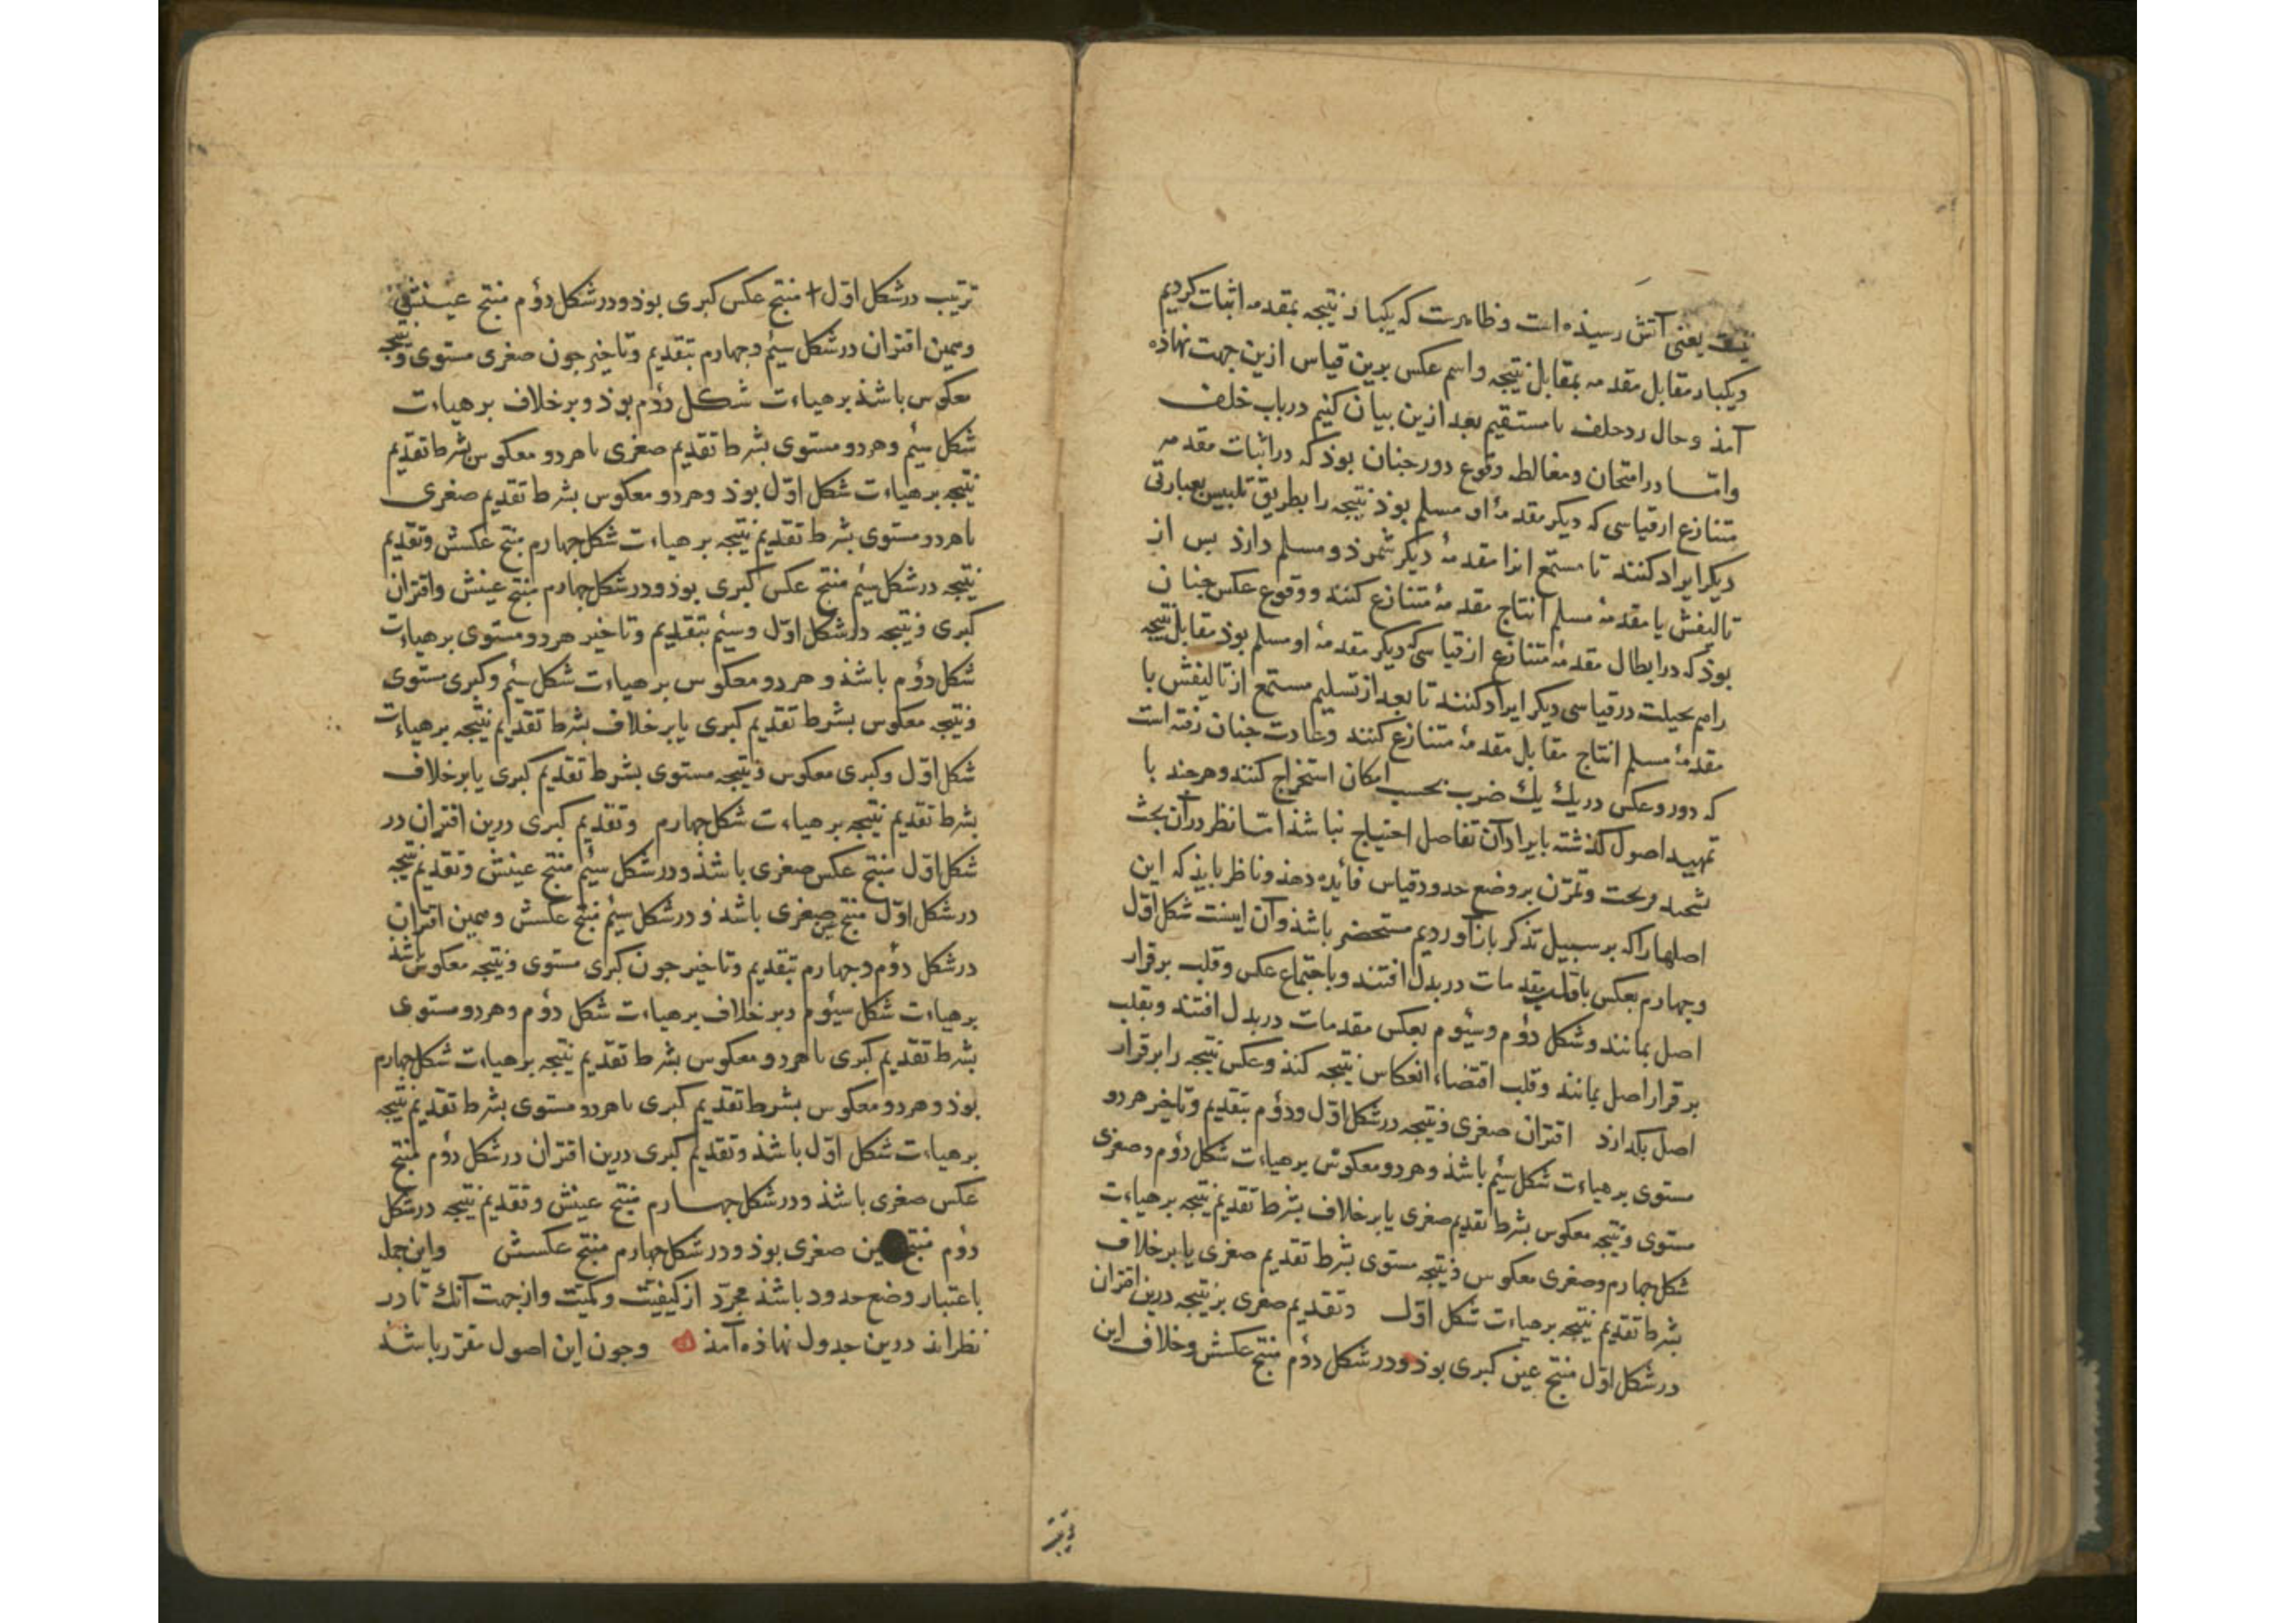 یعنی آتش رسیده است و ظاهرست که یکبار نتیجه بمقدمه اثبات کردیم
و یکبار مقابل مقدمه بمقابل نتیجه و اسم عکس برین قیاس ازین جهت نهاده
آمذ و حال رد خلف با مستقیم بعد ازین بیان کنیم در باب خلف
و امّا در امتحان و مغالطه وقوع دور جنان بوذ که در اثبات مقدمه
متنازع از قیاسی که دیکر مقدمهٔ او مسلم بوذ نتیجه را بطریق تلبیس بعبارتی
دیکر ایراد کنند تا مستمع انرا مقدمهٔ دیکر شمرذ و مسلم دارذ بس از
تالیفش با مقدمهٔ مسلم انتاج مقدمهٔ متنازع کنند و وقوع عکس جنان
بوذ که در ابطال مقدمهٔ متنازع از قیاسی که دیکر مقدمهٔ او مسلم بوذ مقابل نتیجه
را هم بحیلت در قیاسی دیکر ایراد کنند تا بعد از تسلیم مستمع از تالیفش با
مقدمهٔ مسلم انتاج مقابل مقدمهٔ متنازع کنند و عادت جنان رفته است
که دور و عکس در یك یك ضرب بحسب امکان استخراج کنند و هرجند با
تمهید اصول کذشته بایراد آن تفاصل احتیاج نباشذ امّا نظر در آن بحث
تشحیذ قریحت و تمرّن بر وضع حدود قیاس فائده دهذ و ناظر بایذ که این
اصلها را که بر سبیل تذکر باز آوردیم مستحضر باشذ و آن اینست شکل اوّل
و جهارم بعکس یا قلب مقدمات در بدل افتند و باجتماع عکس و قلب برقرار
اصل بمانند و شکل دؤم و سیوم بعکس مقدمات در بدل افتند و بقلب
برقرار اصل بمانند و قلب اقتضاء انعکاس نتیجه کند و عکس نتیجه را برقرار
اصل بکذارذ اقتران صغری و نتیجه در شکل اوّل و دؤم بتقدیم و تاخیر هردو
مستوی بر هیاءت شکل سیم باشذ و هر دو معکوس بر هیاءت شکل دؤم و صغری
مستوی و نتیجه معکوس بشرط تقدیم صغری یا بر خلاف بشرط تقدیم نتیجه بر هیاءت
شکل جهارم و صغری معکوس و نتیجه مستوی بشرط تقدیم صغری یا بر خلاف
بشرط تقدیم نتیجه بر هیاءت شکل اوّل و تقدیم صغری بر نتیجه درین اقتران
در شکل اوّل منتج عین کبری بوذ و در شکل دؤم منتج عکسش و خلاف این
ترتیب در شکل اوّل منتج عکس کبری بوذ و در شکل دؤم منتج عینش
و همین اقتران در شکل سیم و جهارم بتقدیم و تاخیر جون صغری مستوی و نتیجه
معکوس باشذ بر هیاءت شکل دؤم بوذ و بر خلاف بر هیاءت
شکل سیم و هر دو مستوی بشرط تقدیم صغری یا هر دو معکوس بشرط تقدیم
نتیجه بر هیاءت شکل اوّل بوذ و هر دو معکوس بشرط تقدیم صغری
یا هر دو مستوی بشرط تقدیم نتیجه بر هیاءت شکل جهارم منتج عکسش و تقدیم
نتیجه در شکل سیم منتج عکس کبری بوذ و در شکل جهارم منتج عینش و اقتران
کبری و نتیجه در شکل اوّل و سیم بتقدیم و تاخیر هر دو مستوی بر هیاءت
شکل دؤم باشذ و هر دو معکوس بر هیاءت شکل سیم و کبری مستوی
و نتیجه معکوس بشرط تقدیم کبری یا بر خلاف بشرط تقدیم نتیجه بر هیاءت
شکل اوّل و کبری معکوس و نتیجه مستوی بشرط تقدیم کبری یا بر خلاف
بشرط تقدیم نتیجه بر هیاءت شکل جهارم و تقدیم کبری درین اقتران در
شکل اوّل منتج عکس صغری باشذ و در شکل سیم منتج عینش و تقدیم نتیجه
در شکل اوّل منتج عین صغری باشذ و در شکل سیم منتج عکسش و همین اقتران
در شکل دؤم و جهارم بتقدیم و تاخیر جون کبری مستوی و نتیجه معکوس باشذ
بر هیاءت شکل سیوم و بر خلاف بر هیاءت شکل دؤم و هر دو مستوی
بشرط تقدیم کبری یا هر دو معکوس بشرط تقدیم نتیجه بر هیاءت شکل جهارم
بوذ و هر دو معکوس بشرط تقدیم کبری یا هر دو مستوی بشرط تقدیم نتیجه
بر هیاءت شکل اوّل باشذ و تقدیم کبری درین اقتران در شکل دؤم منتج
عکس صغری باشذ و در شکل جهارم منتج عینش و تقدیم نتیجه در شکل
دؤم منتج عین صغری بوذ و در شکل جهارم منتج عکسش و این جمله
باعتبار وضع حدود باشذ مجرّد از کیفیّت و کمیّت و از جهت آنك تا در
نظر اند درین جدول نهاذه آمذ و جون این اصول مقرّر باشذ
ترتیب